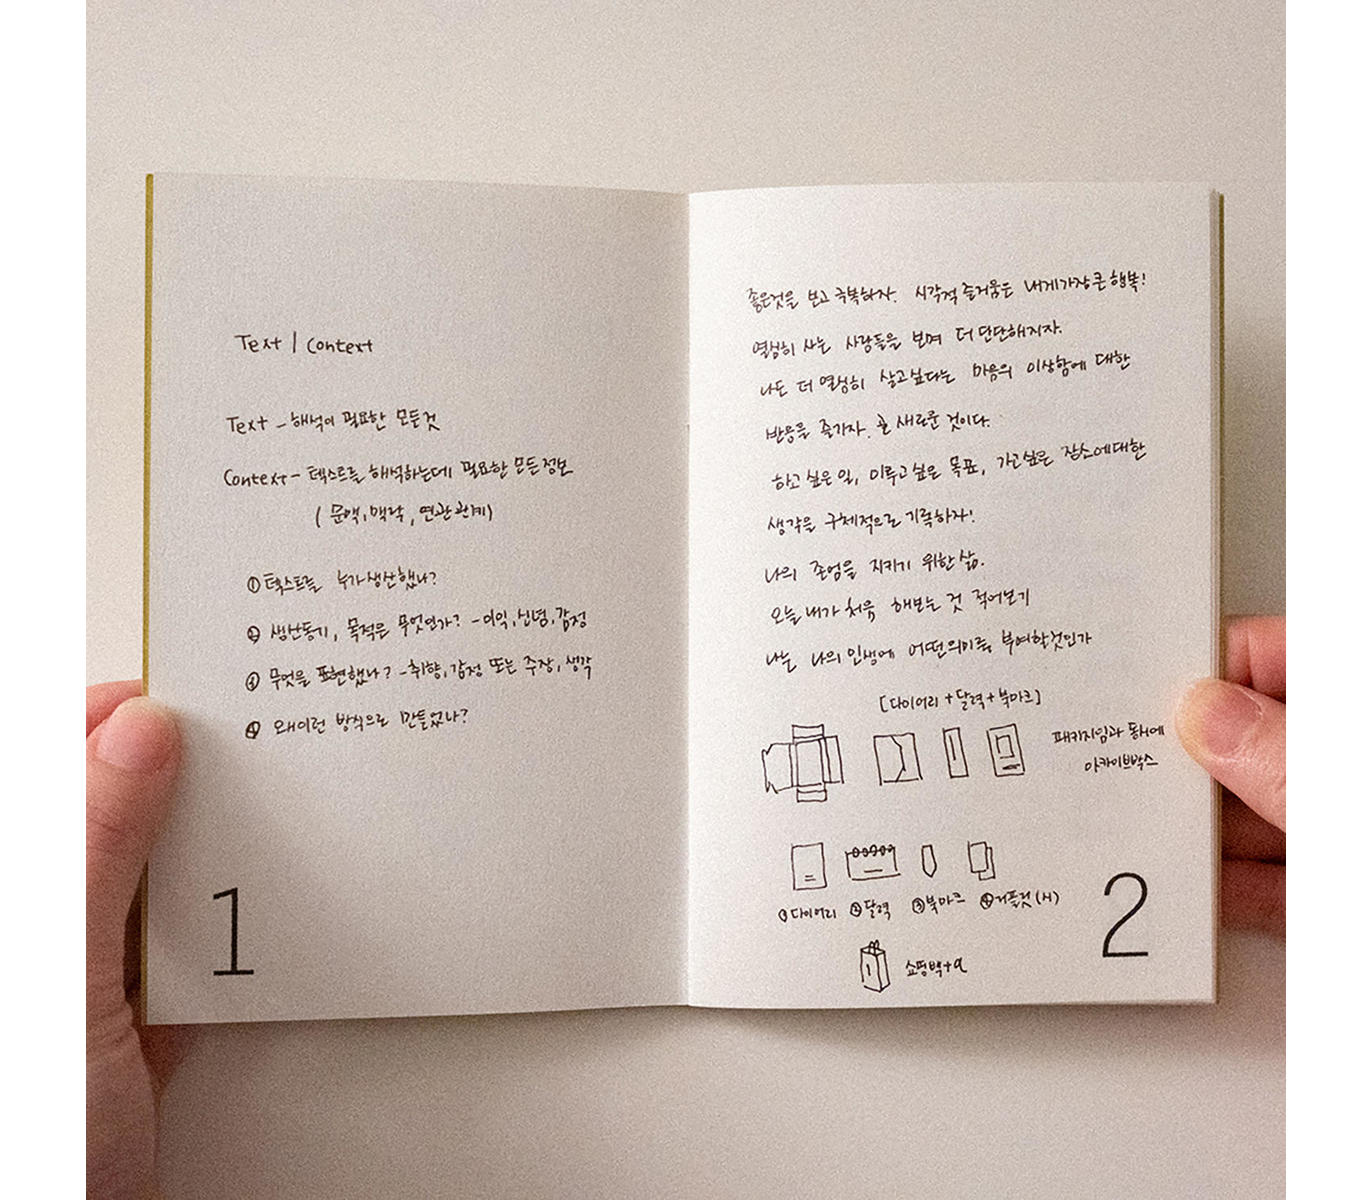 Text | Context
Text - 해석이 필요한 모든것
Context - 텍스트를 해석하는데 필요한 모든정보
( 문맥, 맥락, 연관관계)
① 텍스트를 누가생산했나?
② 생산동기, 목적은 무엇인가? - 이익, 신념, 감정
③ 무엇을 표현했나? - 취향, 감정 또는 주장, 생각
④ 왜이런 방식으로 만들었나?
1
좋은것을 보고 극복하자. 시각적 즐거움은 내게가장큰행복!
열심히 사는 사람들을 보며 더 단단해지자.
나도 더 열심히 살고싶다는 마음의 이상함에 대한
반응을 즐기자. 새로운 것이다.
하고 싶은 일, 이루고싶은 목표, 가고싶은 장소에대한
생각을 구체적으로 기록하자!
나의 존엄을 지키기 위한 삶.
오늘 내가 처음 해보는 것 적어보기
나는 나의 인생에 어떤의미를 부여할것인가
[다이어리 + 달력 + 북마크]
패키지임과 동시에
아카이브박스
① 다이어리 ② 달력 ③ 북마크 ④ 거플컷 (시)
쇼핑백 + α
2